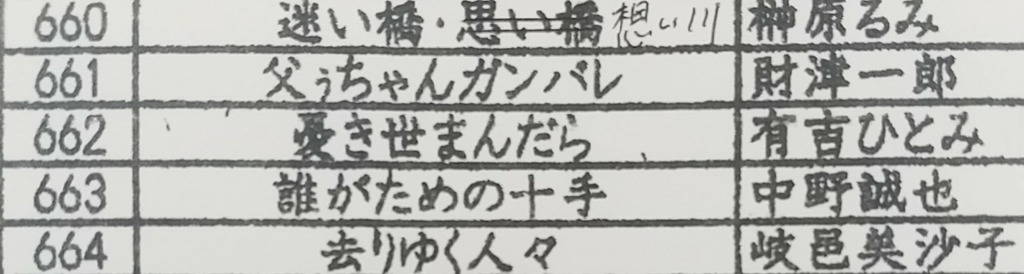 660 迷い橋・思い橋 想い川 榊原るみ
661 父ぅちゃんガンバレ 財津一郎
662 憂き世まんだら 有吉ひとみ
663 誰がための十手 中野誠也
664 去りゆく人々 岐邑美沙子